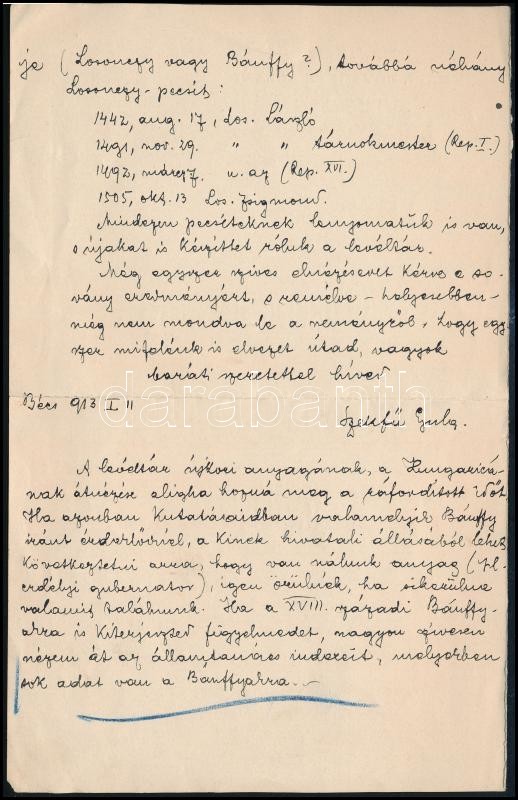 je (Losonczy vagy Bánffy?), továbbá néhány
Losonczy-pecsét:
1442, aug. 17, Los. László
1491, nov. 29. " " tárnokmester (Rep. I.)
1492, márcz 7. u. az (Rep. XVI.)
1505, okt. 13 Los. Zsigmond.
Mindezen pecséteknek lenyomatuk is van,
s újakat is készíttet róluk a levéltár.
Még egyszer szives elnézésedet kérve e so-
vány eredményért, s remélve – helyesebben –
még nem mondva le a reményről, hogy egy-
szer mifelénk is elvezet útad, vagyok
baráti szeretettel híved
Bécs 913 I 11
Szekfű Gyula.
A levéltár újkori anyagának, a Hungaricá-
nak átnézése aligha hozná meg a ráfordított időt.
Ha azonban kutatásaidban valamelyik Bánffy
iránt érdeklődnél, a kinek hivatali állásából lehet
következtetni arra, hogy van nálunk anyag (pl.
erdélyi gubernator), igen örülnék, ha sikerülne
valamit találnunk. Ha a XVIII. századi Bánffy-
akra is kiterjeszted figyelmedet, nagyon szívesen
nézem át az államtanács indexeit, melyekben
sok adat van a Bánffyakra.
darabanth